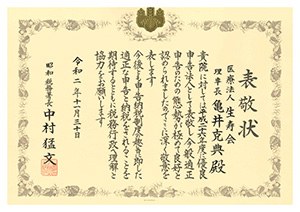 表敬状
医療法人 生寿会
理事長 亀井克典 殿
貴院に対しては平成二十六年度に優良
申告法人として表敬し今般適正
申告のための態勢が極めて良好と
認められましたのでここに深く敬意を
表します
今後とも申告納税制度の趣旨に即した
適正な申告と納税をされることを
期待するとともに税務行政へ理解と
協力をお願いします
令和二年十一月三十日
昭和税務署長
中村猛文